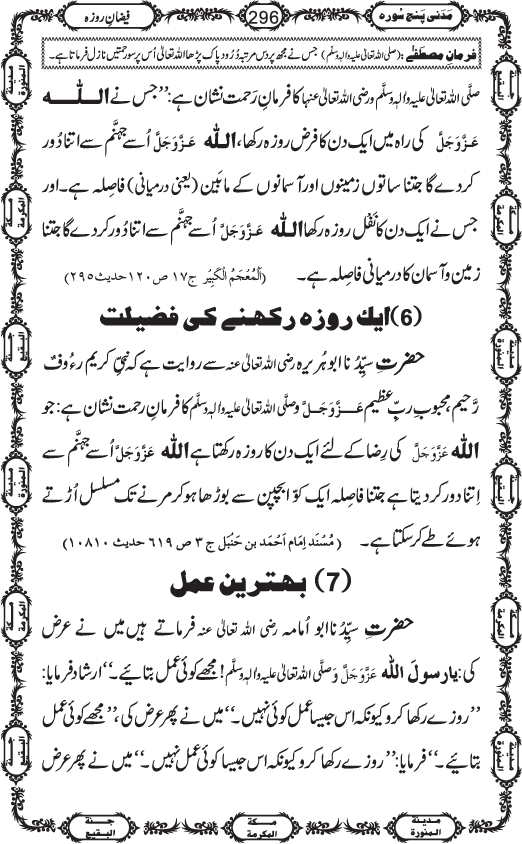 مَدَنی پَنج سُورہ
296
فیضانِ روزہ
فرمانِ مصطفٰے : (صلی اللہ تعالیٰ علیہ واٰلہٖ وسلّم) جس نے مجھ پر دس مرتبہ دُرُود پاک پڑھا اللہ تعالیٰ اُس پر سو رحمتیں نازل فرماتا ہے۔
صلَّی اللہ تعالیٰ علیہ واٰلہٖ وسلَّم ورضی اللہ تعالیٰ عنہا کا فرمانِ رَحمت نشان ہے: ’’جس نے اللہ
عَزَّوَجَلَّ کی راہ میں ایک دن کا فرض روزہ رکھا، اللہ عَزَّوَجَلَّ اُسے جہنَّم سے اتنا دُور
کردے گا جتنا ساتوں زمینوں اور آسمانوں کے مابَین (یعنی درمیانی) فاصلہ ہے۔ اور
جس نے ایک دن کا نَفْل روزہ رکھا اللہ عَزَّوَجَلَّ اُسے جہنَّم سے اتنا دُور کردے گا جتنا
زمین وآسمان کا درمیانی فاصلہ ہے۔ (اَلْمُعْجَمُ الْکَبِیْر ج ۱۷ ص ۱۲۰ حدیث ۲۹۵)
(6) ایک روزہ رکھنے کی فضیلت
حضرتِ سیِّدُنا ابوہُریرہ رضی اللہ تعالیٰ عنہ سے روایت ہے کہ نبیِّ کریم رءُوفٌ
رَّحیم محبوبِ ربِّ عظیم عَزَّوَجَلَّ وصلَّی اللہ تعالیٰ علیہ واٰلہٖ وسلَّم کا فرمانِ رحمت نشان ہے: جو
اللہ عَزَّوَجَلَّ کی رِضا کے لئے ایک دن کا روزہ رکھتا ہے اللہ عَزَّوَجَلَّ اُسے جہنَّم سے
اِتنا دور کردیتا ہے جتنا فاصلہ ایک کوّا بچپن سے بوڑھا ہوکر مرنے تک مسلسل اُڑتے
ہوئے طے کرسکتا ہے۔ (مُسْنَد اِمَام اَحْمَد بن حَنْبَل ج ۳ ص ۶۱۹ حدیث ۱۰۸۱۰)
(7) بہترین عمل
حضرتِ سیِّدُنا ابو اُمامہ رضی اللہ تعالیٰ عنہ فرماتے ہیں میں نے عرض
کی: یا رسولَ اللہ عَزَّوَجَلَّ وَصلَّی اللہ تعالیٰ علیہ واٰلہٖ وسلَّم! مجھے کوئی عمل بتائیے۔‘‘ ارشاد فرمایا:
’’روزے رکھا کرو کیونکہ اس جیسا عمل کوئی نہیں۔‘‘ میں نے پھر عرض کی، ’’مجھے کوئی عمل
بتائیے۔‘‘ فرمایا: ’’روزے رکھا کرو کیونکہ اس جیسا کوئی عمل نہیں۔‘‘ میں نے پھر عرض
مدینۃ المنورۃ
مکۃ المکرمۃ
جنۃ البقیع
مدینۃ المنورۃ
مکۃ المکرمۃ
جنۃ البقیع
جنۃ البقیع
مکۃ المکرمۃ
مدینۃ المنورۃ
جنۃ البقیع
مکۃ المکرمۃ
مدینۃ المنورۃ
مدینۃ المنورۃ
مکۃ المکرمۃ
جنۃ البقیع